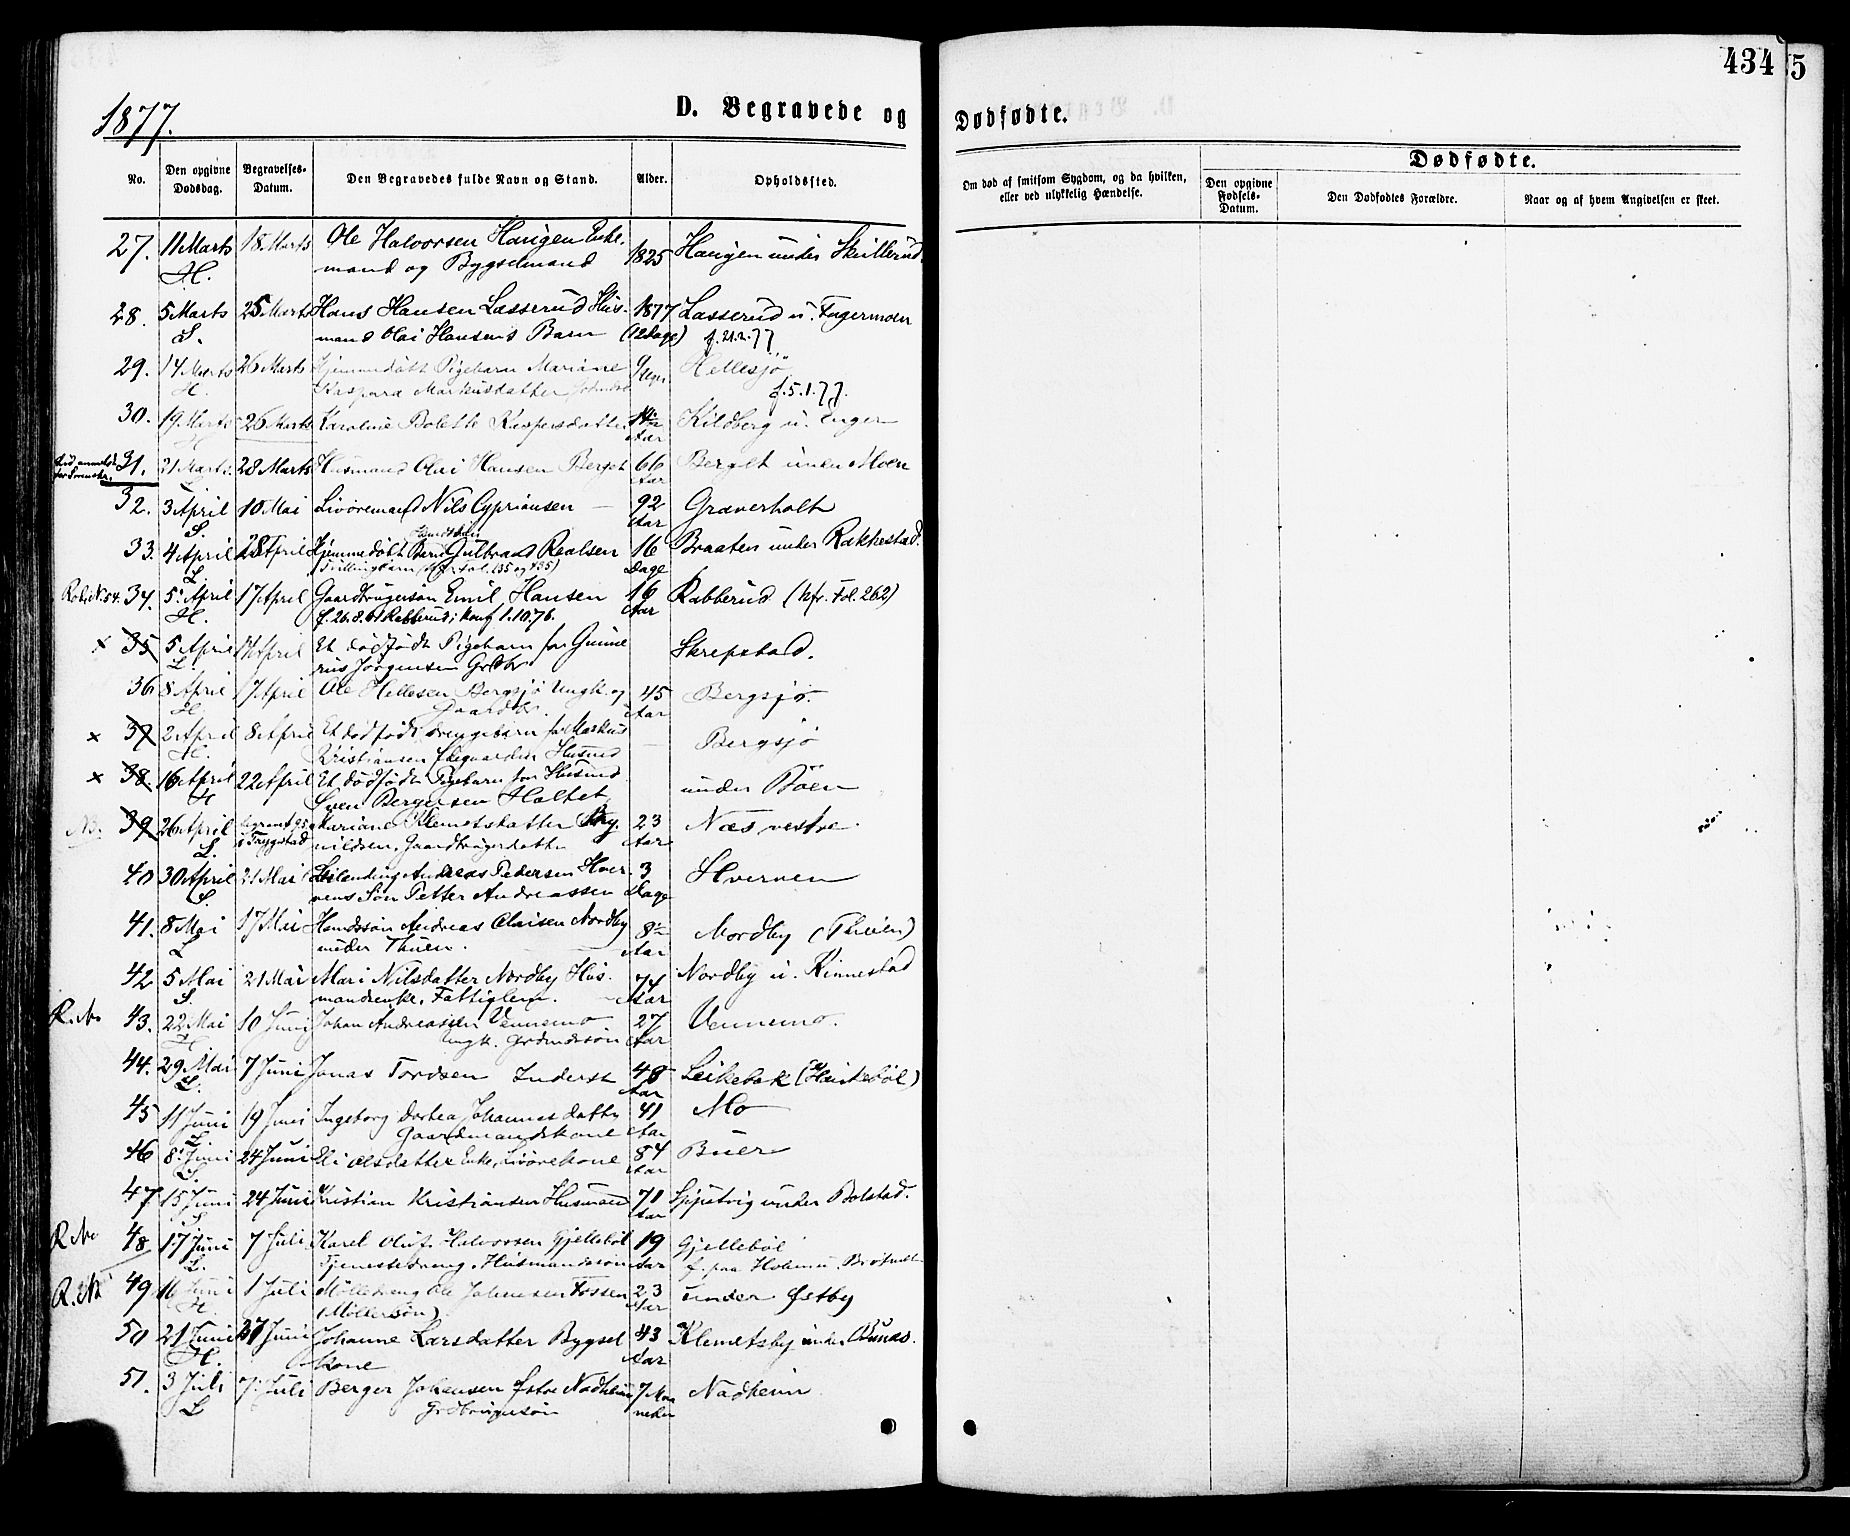 434 5
1877.
D. Begravede og Dødfødte.
No. Den opgivne Dødsdag. Begravelses-Datum. Den Begravedes fulde Navn og Stand. Alder. Opholdssted.
Om død af smitsom Sygdom, og da hvilken, eller ved ulykkelig Hændelse.
Dødfødte.
Den opgivne Fødsels-Datum. Den Dødfødtes Forældre. Naar og af hvem Angivelsen er skeet.
27. 11 Marts 18 Marts Ole Halvorsen Haugen Enke- 1825 Haugen under Skullerud
H. mand og Bygselmand
28. 5 Marts 25 Marts Hans Hansen Lasserud Hus- 1877 Lasserud u. Fugermoen
S. mand Olai Hansen's Barn (12 Dage) f. 21.2.77
29. 14 Marts 26 Marts Hjemmedøbt Pigebarn Mariane 9 Hellesjö
H. Kaspara Markusdatter f. 5.1.77.
30. 19 Marts 26 Marts Karoline Bolette Kaspersdatter Kildberg u. Enger
Aar
31. 21 Marts 28 Marts Husmand Olai Hansen Berget 66 Berget unen Moen
Aar
32. 3 April 10 Mai Livøremand Nils Cypriansen 92 Graverholt
S. Aar
33. 4 April 28 April Hjemmedøbt Barn Gulbrand Realsen 16 Braaten under Rakkestad.
L. Tvillingbarn Dage
34. 5 April 17 April Gaardbrugersøn Emil Hansen 16 Rabberud (kfr. Fol. 262)
H. f. 26.8.61 Rabberud; konf 1.10.76. Aar
x 35 5 April 17 April Et dødfødt Pigebarn for Gunne- Skrepstad.
L. rius Jørgensen Grdbr
36 8 April 17 April Ole Hellesen Bergsjø Ungk. og 45 Bergsjø.
H. Gaardbr. Aar
x 37 2 April 8 April Et dødfødt Drengebarn for Markus Bergsjø
H. Kristiansen Husmd
x 38 16 April 22 April Et dødfødt Pigebarn for Husmd under Böen
H Sven Bergersen Holtet
NB. 39 26 April Mariane Klemetsdatter 23 Næs vestre.
L. i Trygstad Gaardbrugerdatter Aar
40 30 April 21 Mai Leilending Andreas Pedersen Hver- 3 Hverven
S. vens Søn Petter Andreassen Dage
41. 8 Mai 17 Mai Andreas Olaisen Nordby 8 Nordby (Thuen)
L under Thuen. Aar
42 5 Mai 21 Mai Mari Nilsdatter Nordby Hus- 74 Nordby u. Kinnestad
S. mandsenke, Fattiglem. Aar
43. 22 Mai 10 Juni Johan Andreassen Vennemo 27 Vennemo.
H Ungk. Aar
44. 29 Mai 7 Juni Jonas Tordsen Inderst 48 Leikebak
L. Aar
45 11 Juni 19 Juni Ingeborg Dortea Johannesdatter 41 Mo
L Gaardmandskone Aar
46 8 Juni 24 Juni Eli Olsdatter Enke, Livørekone 84 Buer
S. Aar
47 15 Juni 24 Juni Kristian Kristiansen Husmand 71 Spjutvig under Bolstad.
S Aar
48 17 Juni 7 Juli Karel Oluf Halvorsen Gjellebøl 19 Gjellebøl
L. Tjenestedreng, Husmandssøn Aar
49 16 Juni 1 Juli Mølledreng Ole Johnsen Fossen 23 under Østby
H. (Møllersøn) Aar
50 21 Juni 27 Juni Johanne Larsdatter Bygsel- 43 Klemetsby under
H. kone Aar
51. 3 Juli 7 Juli Berger Johansen Østre Nadheim 7 Maa- Nadheim
L Grdbrugersøn neder